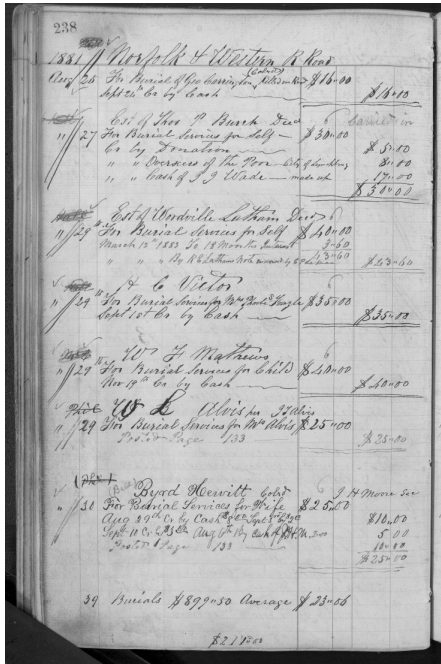 238
1881 Norfolk & Western R Road
Aug 26 For Burial of Geo Carrington (Colored) Killed on Road $16=00
Sept 24 Cr by Cash $16=00
Est of Thos P Burch Decd
" 27 For Burial Services for Self $30=00
Cr by Donation $5=00
" " Overseers of the Poor City of Lynchburg 8=00
" " Cash of J J Wade made up 17=00
$30=00
Est of Woodville Latham Decd
" 29 For Burial Services for Self $40=00
March 12th 1883 To 18 Months Interest 3=60
43=60
" " By R E Latham Note $43=60
H C Victor
" 29 For Burial Services for Mrs $35=00
Sept 1st Cr by Cash $35=00
W F Mathews
" 29 For Burial Services for Child $40=00
Nov 19th Cr by Cash $40=00
W L Alvis per
" 29 For Burial Services for Mrs Alvis $25=00
Posted Page 133 $25=00
Byrd Hewitt Cold J H Moore Sec
" 30 For Burial Services for Wife $25=00
Aug 29th Cr by Cash $10=00
Sept 10 Cr 5 00
Posted Page 133 10=00
$25=00
39 Burials $899=50 Average $23=06
$211=00